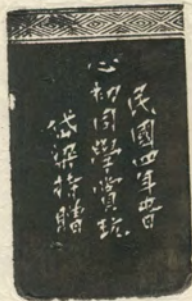 民國四年春
心初同學賞玩
岱梁持贈